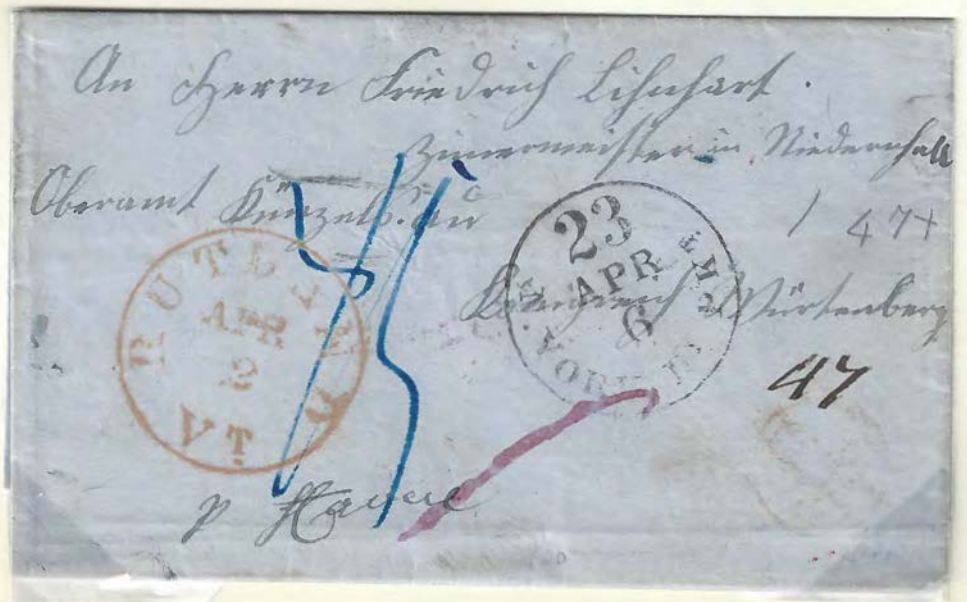 An Herrn Friedrich Lihnhart.
Zimermeister in Niedernhall
Oberamt Künzelsau
/ 474
Königreich Würtenberg
47
p Havre
RUTLAND
APR
2
VT.
23
N. YORK AM. PKT.
APR
6